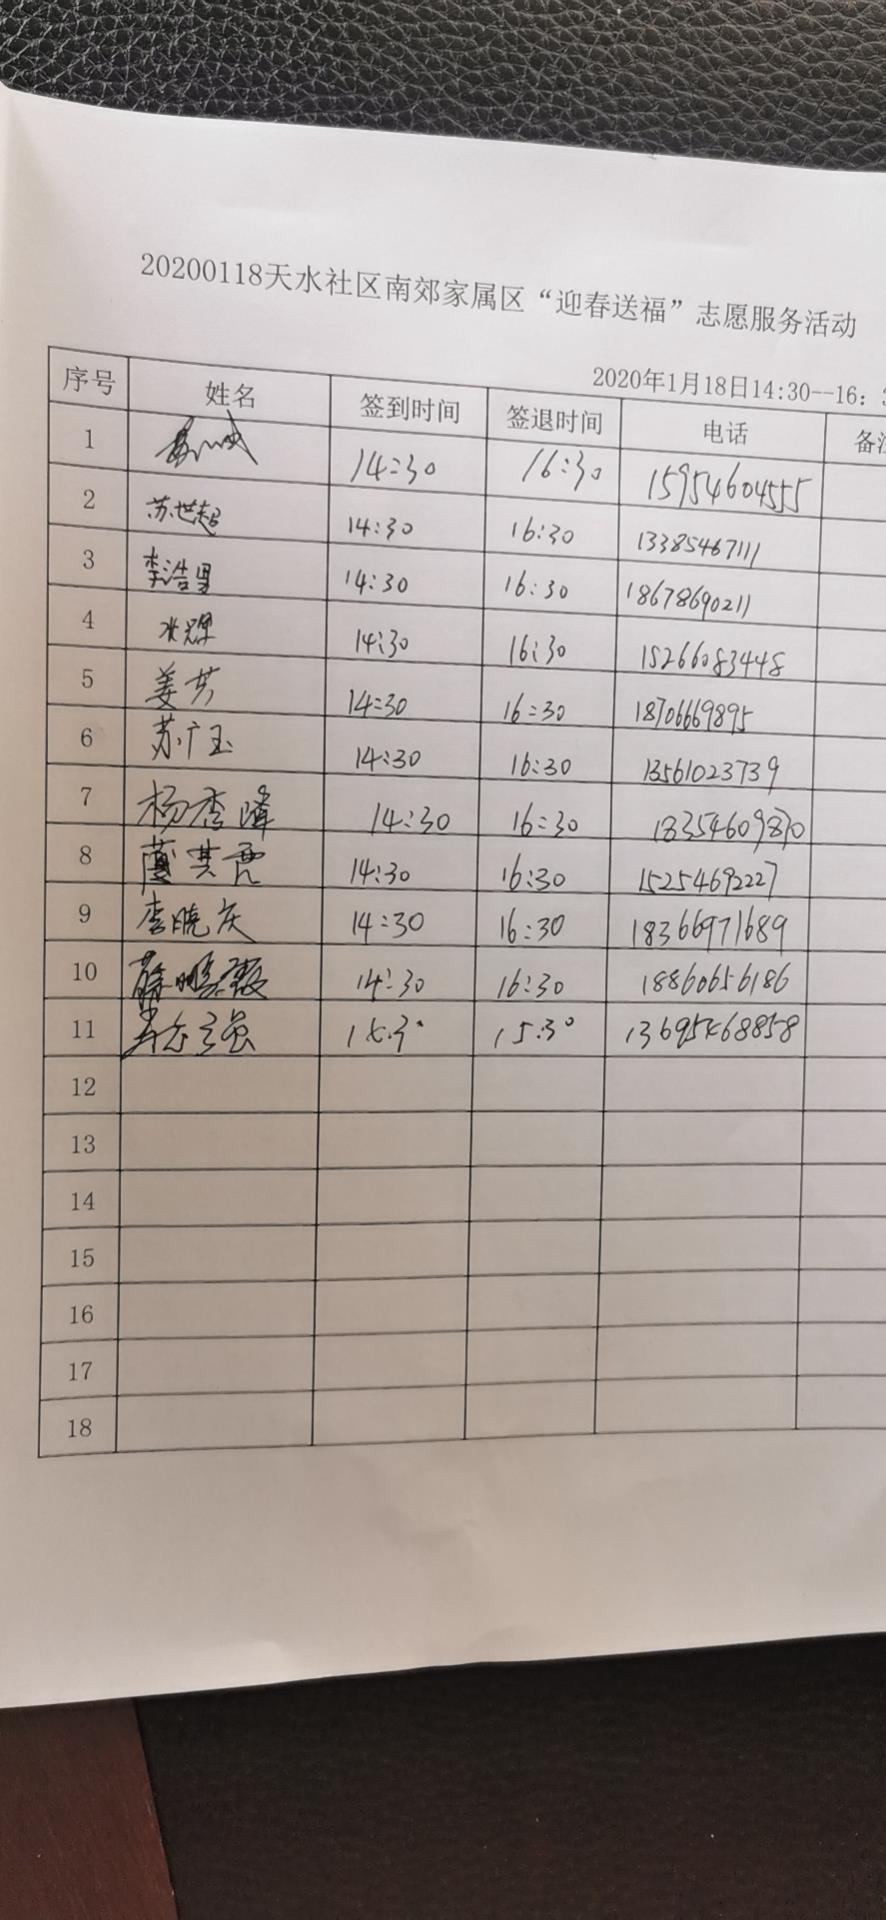 20200118天水社区南郊家属区“迎春送福”志愿服务活动
2020年1月18日14:30--16:
序号 姓名 签到时间 签退时间 电话 备注
1 14:30 16:30 15954604555
2 苏世超 14:30 16:30 13385467111
3 李浩男 14:30 16:30 18678690211
4 14:30 16:30 15266083448
5 姜芳 14:30 16:30 18706669895
6 苏广玉 14:30 16:30 13561023739
7 杨秀峰 14:30 16:30
8 14:30 16:30 15254692227
9 李晓庆 14:30 16:30 18366971689
10 薛鹏 14:30 16:30 18860656186
11 15:30 13695468858
12
13
14
15
16
17
18